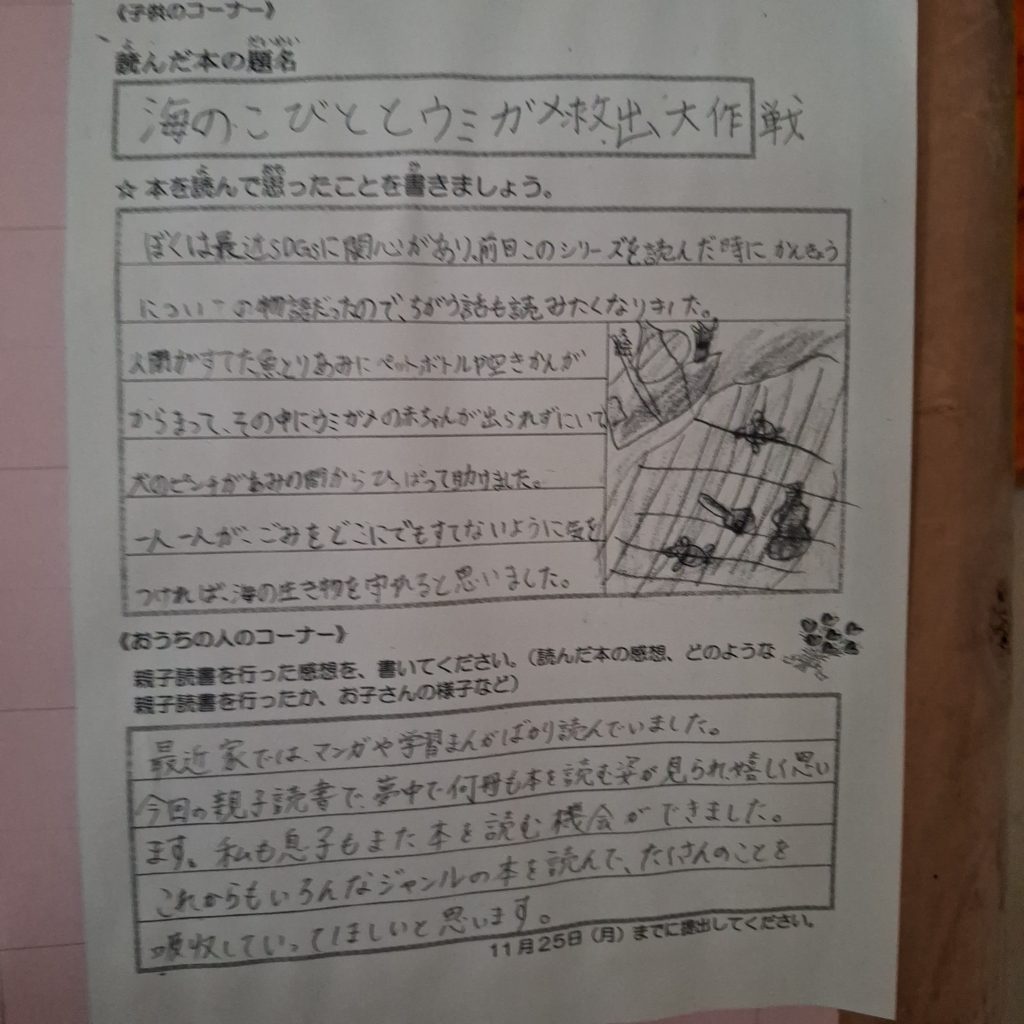 《子供のコーナー》
読んだ本の題名
海のこびととウミガメ救出大作戦
☆本を読んで思ったことを書きましょう。
ぼくは最近SDGsに関心があり、前日このシリーズを読んだ時にかんきょう
についての物語だったので、ちがう話も読みたくなりました。
人間がすてた魚とりあみにペットボトルや空きかんが
からまって、その中にウミガメの赤ちゃんが出られずにいて
犬のピンチがあみの間からひっぱって助けました。
一人一人が、ごみをどこにでもすてないように気を
つければ、海の生き物を守れると思いました。
《おうちの人のコーナー》
親子読書を行った感想を、書いてください。(読んだ本の感想、どのような
親子読書を行ったか、お子さんの様子など)
最近家では、マンガや学習まんがばかり読んでいました。
今回の親子読書で、夢中で何冊も本を読む姿が見られ嬉しく思い
ます。私も息子もまた本を読む機会ができました。
これからもいろんなジャンルの本を読んで、たくさんのことを
吸収していってほしいと思います。
11月25日(月)までに提出してください。